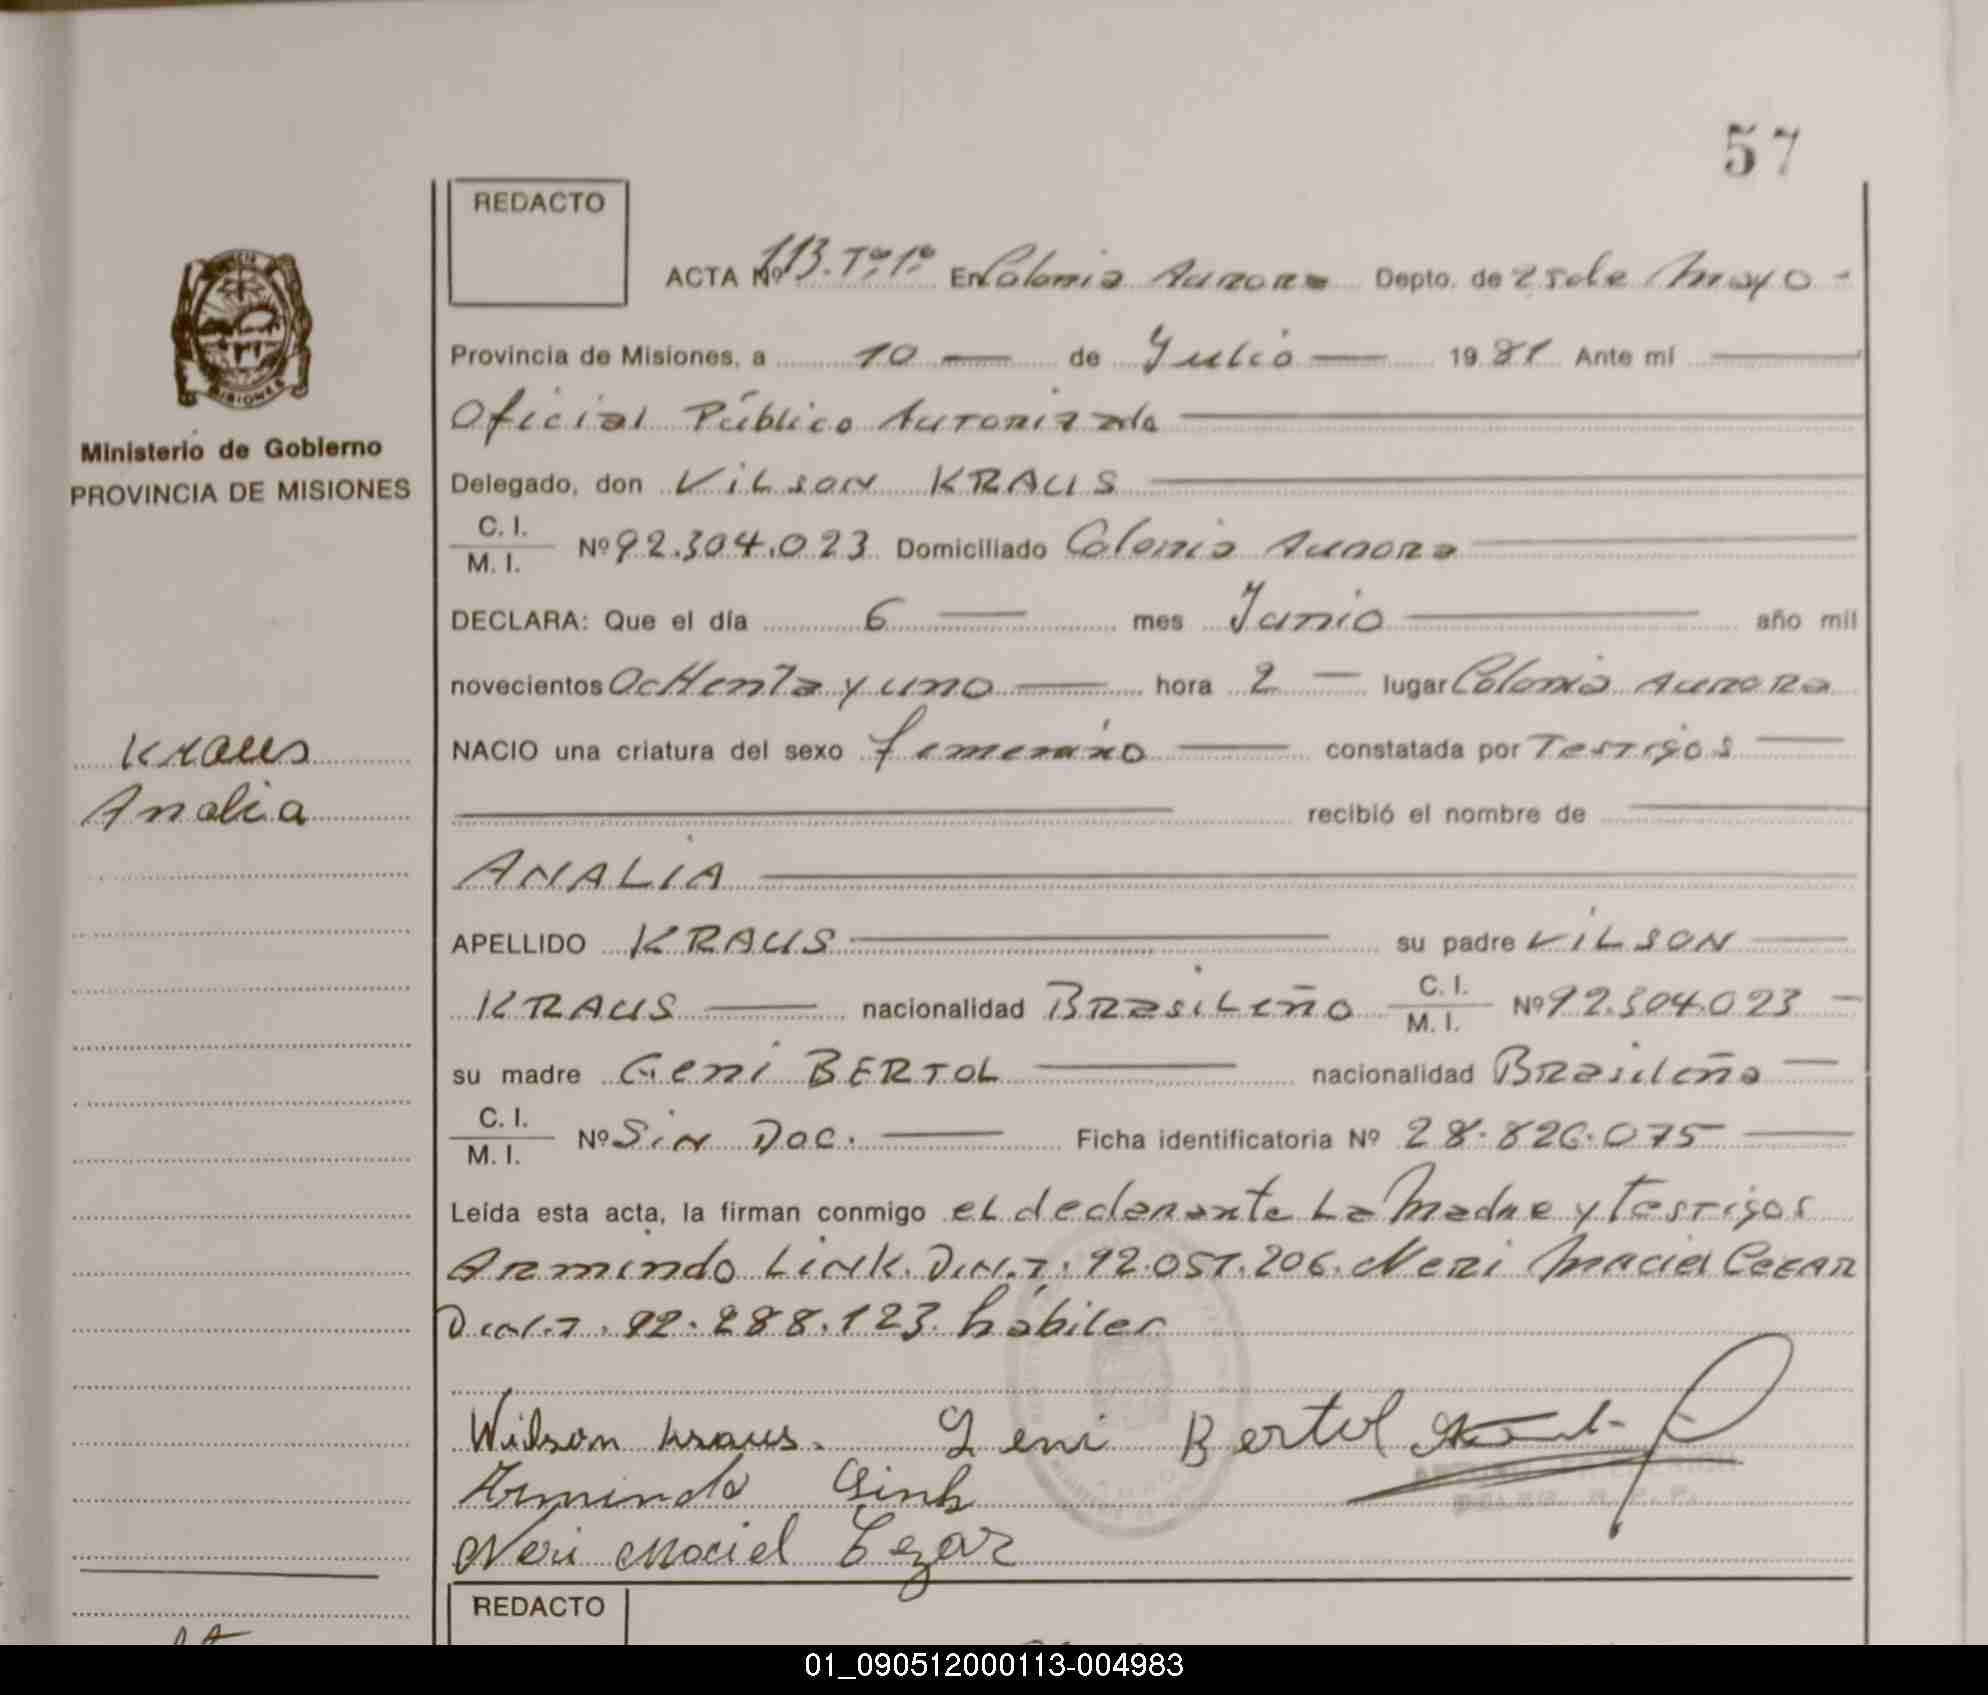 57
REDACTO
ACTA Nº 113. Tº. 1º En Colonia Aurora Depto. de 25 de Mayo -
Provincia de Misiones, a 10 de Julio 1981 Ante mí
Oficial Público Autorizado
Delegado, don Vilson KRAUS
C. I.
M. I.
Nº 92.304.023 Domiciliado Colonia Aurora
DECLARA: Que el día 6 mes Junio año mil
novecientos Ochenta y uno hora 2 lugar Colonia Aurora
NACIO una criatura del sexo femenino constatada por Testigos
recibió el nombre de
ANALIA
APELLIDO KRAUS su padre VILSON
KRAUS nacionalidad Brasileño C. I. M. I. Nº 92.304.023
su madre Geni BERTOL nacionalidad Brasileña
C. I.
M. I.
Nº Sin Doc. Ficha identificatoria Nº 28.826.075
Leída esta acta, la firman conmigo el declarante La Madre y Testigos
Armindo Link. D.N.I. 92.051.206. Neri Maciel Cezar
D.N.I. 92.288.123. hábiles
Wilson Kraus. Geni Bertol
Armindo Link
Neri Maciel Cezar
REDACTO
MISIONES
Ministerio de Gobierno
PROVINCIA DE MISIONES
Kraus
Analia
01_090512000113-004983